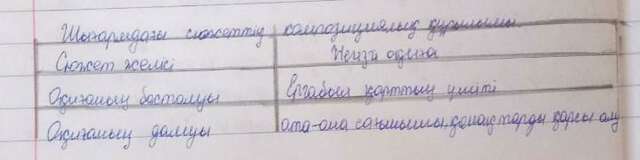 Шығармадағы сюжеттің композициялық құрылымы
Сюжет желісі Негізгі оқиға
Оқиғаның басталуы Ерғабыл қарттың үміті
Оқиғаның дамуы ата-ана сағынышы, қонақтарды қарсы алу